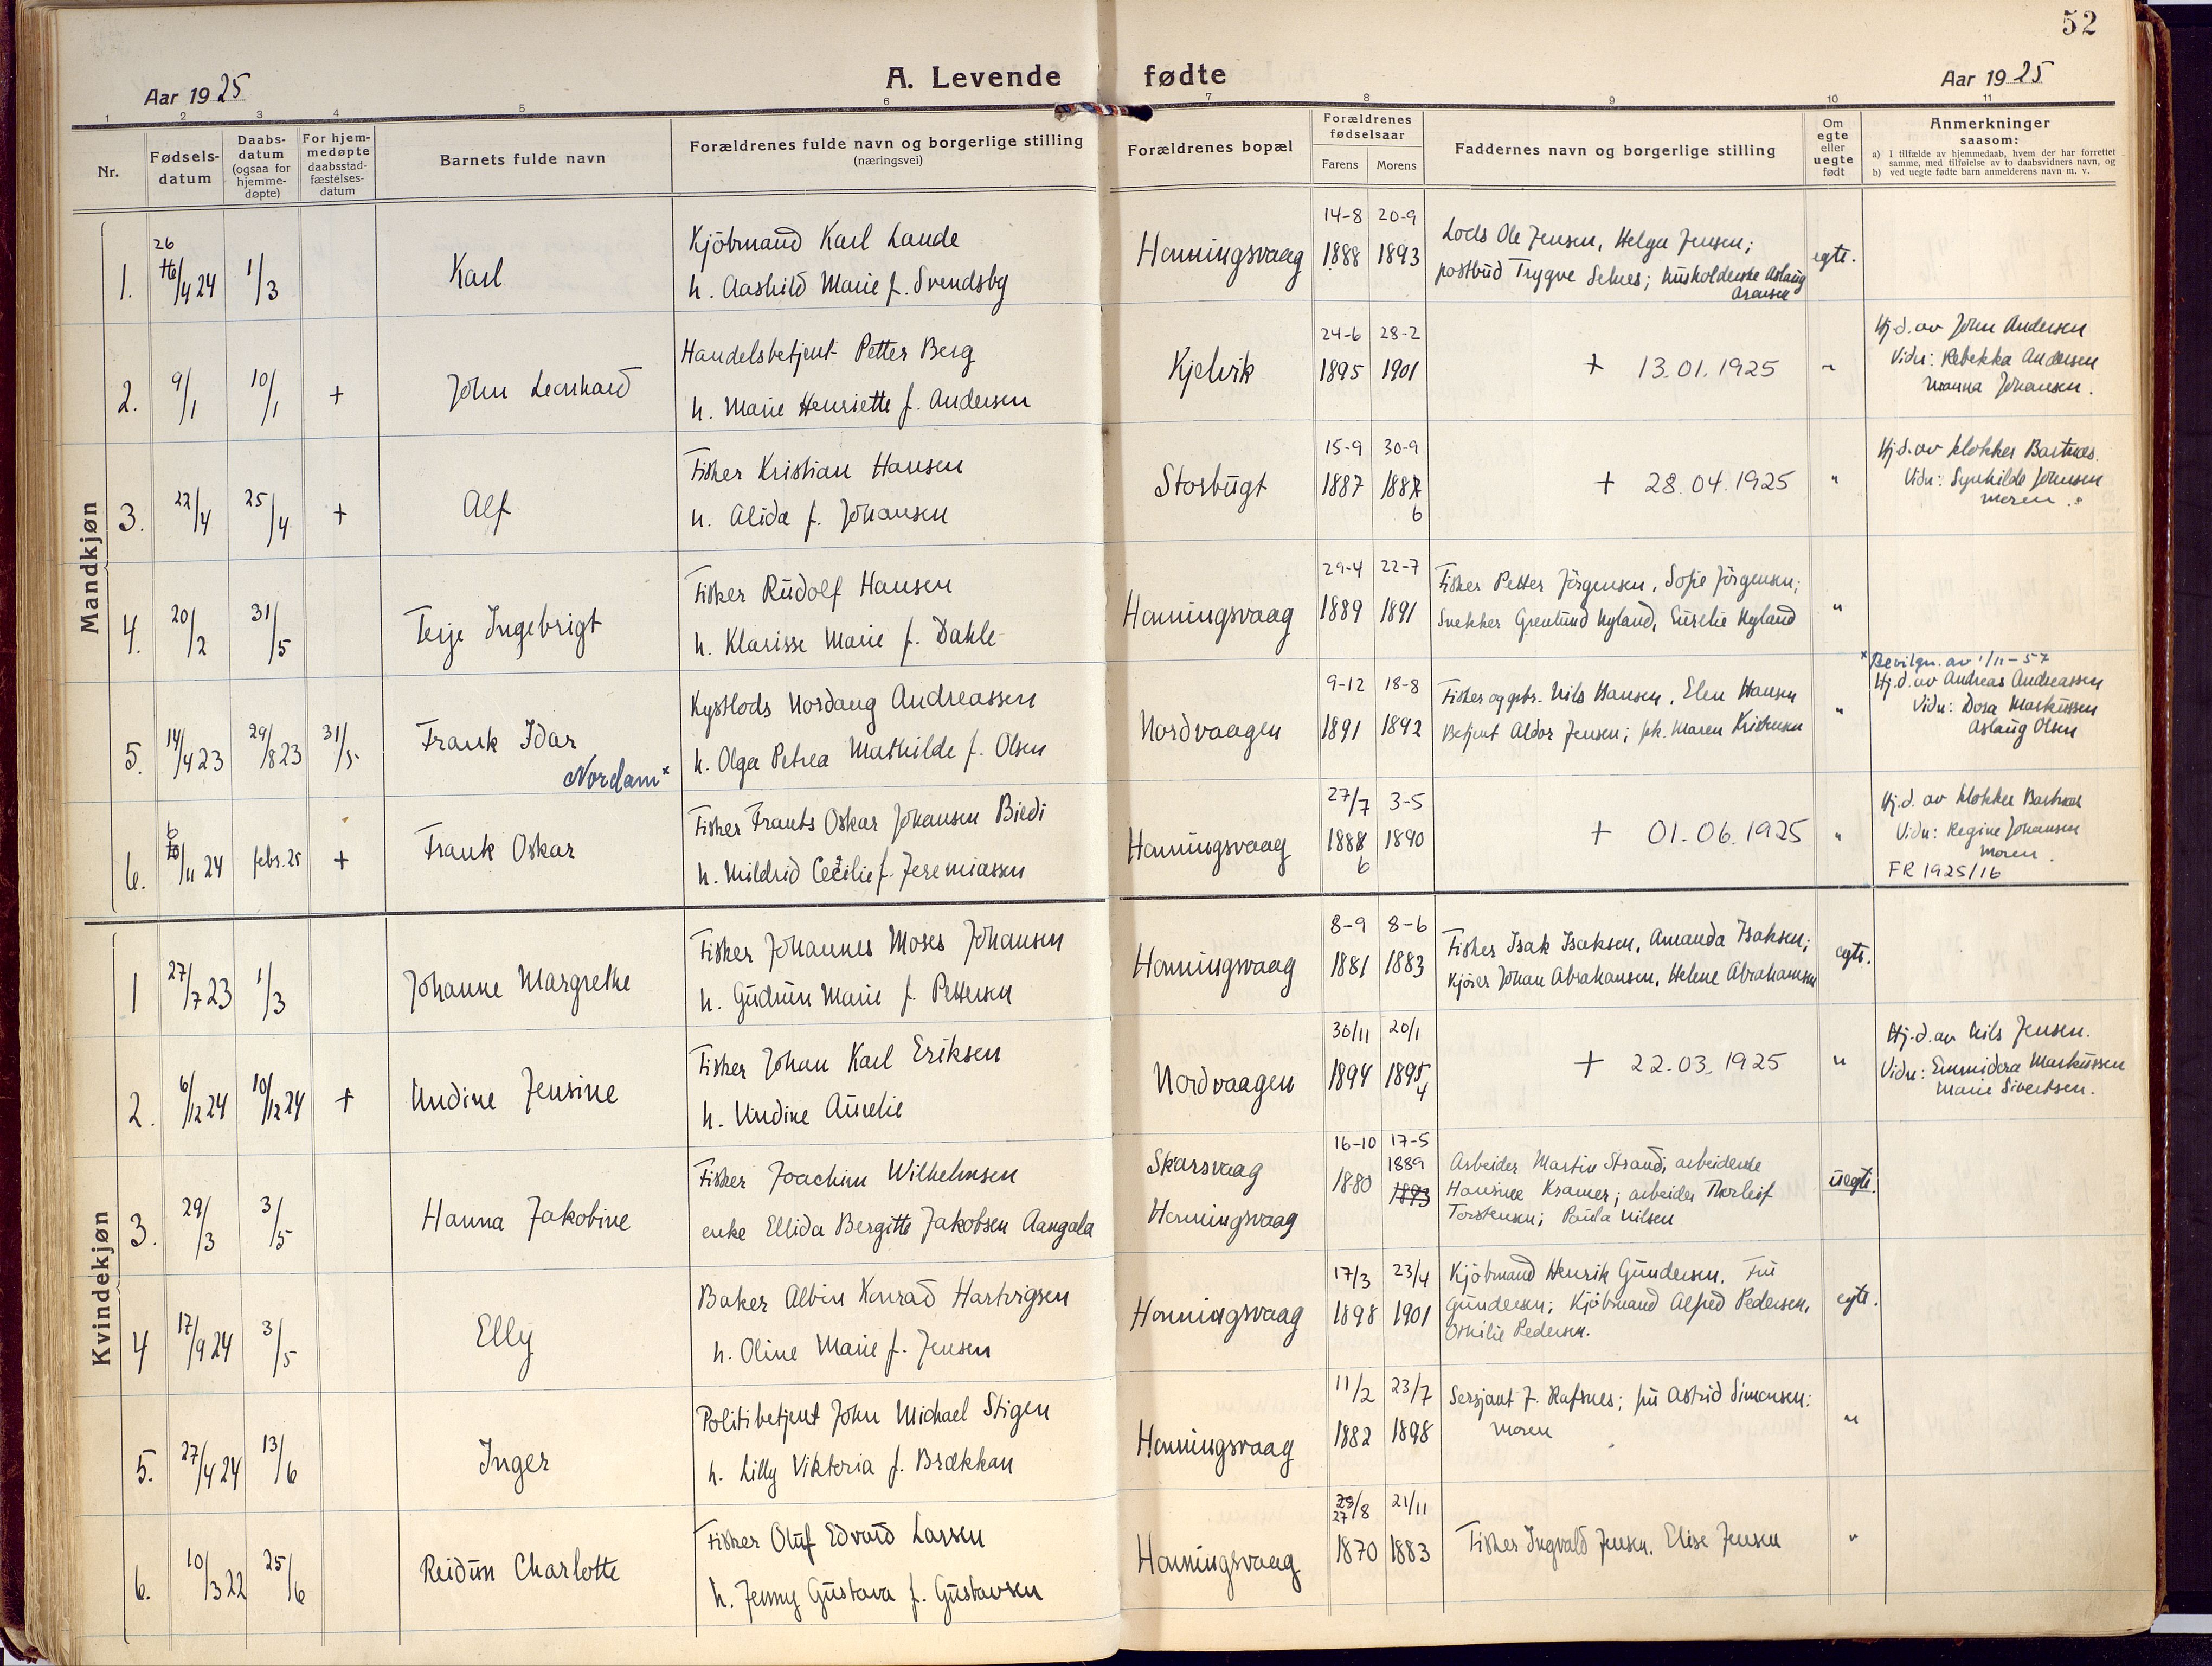 52
A. Levende fødte
Aar 1925
Aar 1925
1 2 3 4 5 6 7 8 9 10 11
Nr.
Fødsels-
datum
Daabs-
datum
(ogsaa for
hjemme-
døpte)
For hjem-
medøpte
daabsstad-
fæstelses-
datum
Barnets fulde navn
Forældrenes fulde navn og borgerlige stilling
(næringsvei)
Forældrenes bopæl
Forældrenes
fødselsaar
Farens Morens
Faddernes navn og borgerlige stilling
Om
egte
eller
uegte
født
Anmerkninger
saasom:
a) I tilfælde av hjemmedaab, hvem der har forrettet
samme, med tilføielse av to daabsvidners navn, og
b) ved uegte fødte barn anmelderens navn m. v.
Mandkjøn
1. 26/4 24 1/3 Karl
Kjöbmand Karl Lande
h. Aashild Marie f. Svendsby
Honningsvaag
14-8 20-9
1888 1893
Lods Ole Jensen, Helga Jensen;
postbud Trygve Selnes; husholderske Aslaug
Aronsen
egte.
2. 9/1 10/1 + John Leonhard
Handelsbetjent Petter Berg
h. Marie Henriette f. Andersen
Kjelvik
24-6 28-2
1895 1901
+ 13.01.1925
"
Hj.d. av John Andersen
Vidn: Rebekka Andersen
Nanna Johansen.
3. 22/4 25/4 + Alf
Fisker Kristian Hansen
h. Alida f. Johansen
Storbugt
15-9 30-9
1887 1887
6
+ 28.04.1925
"
Hj.d. av klokker Bastnæs.
Vidn: Synhilde Johnsen
moren.
4. 20/2 31/5 Terje Ingebrigt
Fisker Rudolf Hansen
h. Klarisse Marie f. Dahle
Honningsvaag
29-4 22-7
1889 1891
Fisker Petter Jörgensen, Sofie Jörgensen;
Snekker Grenlund Nyland, Nyland
"
5. 14/4 23 29/8 23 31/5 Frank Idar
Nordam x
Kystlods Nordang Andreassen
h. Olga Petrea Mathilde f. Olsen
Nordvaagen
9-12 18-8
1891 1892
Fisker og grbr. Nils Hansen, Elen Hansen
Betjent Aldor Jensen; frk. Maren Kristensen
"
x Bevilgn. av 1/11-57
Hj.d. av Andreas Andreassen
Vidn: Dosa Markussen
Aslaug Olsen
6. 6/11 24 febr. 25 + Frank Oskar
Fisker Frants Oskar Johansen Biedi
h. Mildrid Cecilie f. Jeremiassen
Honningsvaag
27/7 3-5
1888 1890
6
+ 01.06.1925
"
Hj.d. av klokker Bastnæs
Vidn: Regine Johansen
moren.
FR 1925/16
Kvindekjøn
1 27/7 23 1/3 Johanne Margrethe
Fisker Johannes Moses Johansen
h. Gudrun Marie f. Pettersen
Honningsvaag
8-9 8-6
1881 1883
Fisker Isak Isaksen, Amanda Isaksen;
Kjörer Johan Abrahamsen, Helene Abrahamsen
egte.
2. 6/12 24 10/12 24 + Undine Jensine
Fisker Johan Karl Eriksen
h. Undine Aurelie
Nordvaagen
30/11 20/1
1894 1895
4
+ 22.03.1925
"
Hj.d. av Nils Jensen.
Vidn: Emmidora Markussen
Marie Sivertsen.
3. 29/3 3/5 Hanna Jakobine
Fisker Joachim Wilhelmsen
enke Ellida Bergitte Jakobsen Aangala
Skarsvaag
Honningsvaag
16-10 17-5
1889
1880 1893
Arbeider Martin Strand; arbeiderske
Hansine Kramer; arbeider Thorleif
Torstensen; Paula Nilsen
uegte.
4 17/9 24 3/5 Elly
Baker Albin Konrad Hartvigsen
h. Oline Marie f. Jensen
Honningsvaag
17/3 23/4
1898 1901
Kjöbmand Henrik Gundersen, Fru
Gundersen; Kjöbmand Alfred Pedersen,
Othilie Pedersen.
egte.
5. 27/4 24 13/6 Inger
Politibetjent John Michael Stigen
h. Lilly Viktoria f. Brækkan
Honningsvaag
11/2 23/7
1882 1898
Sersjant J. Rafsnes; fru Astrid Simonsen:
moren
"
6. 10/3 22 25/6 Reidun Charlotte
Fisker Oluf Edvard Larsen
h. Jenny Gustava f. Gustavsen
Honningsvaag
28/8 21/11
27
1870 1883
Fisker Ingvald Jensen. Elise Jensen
"